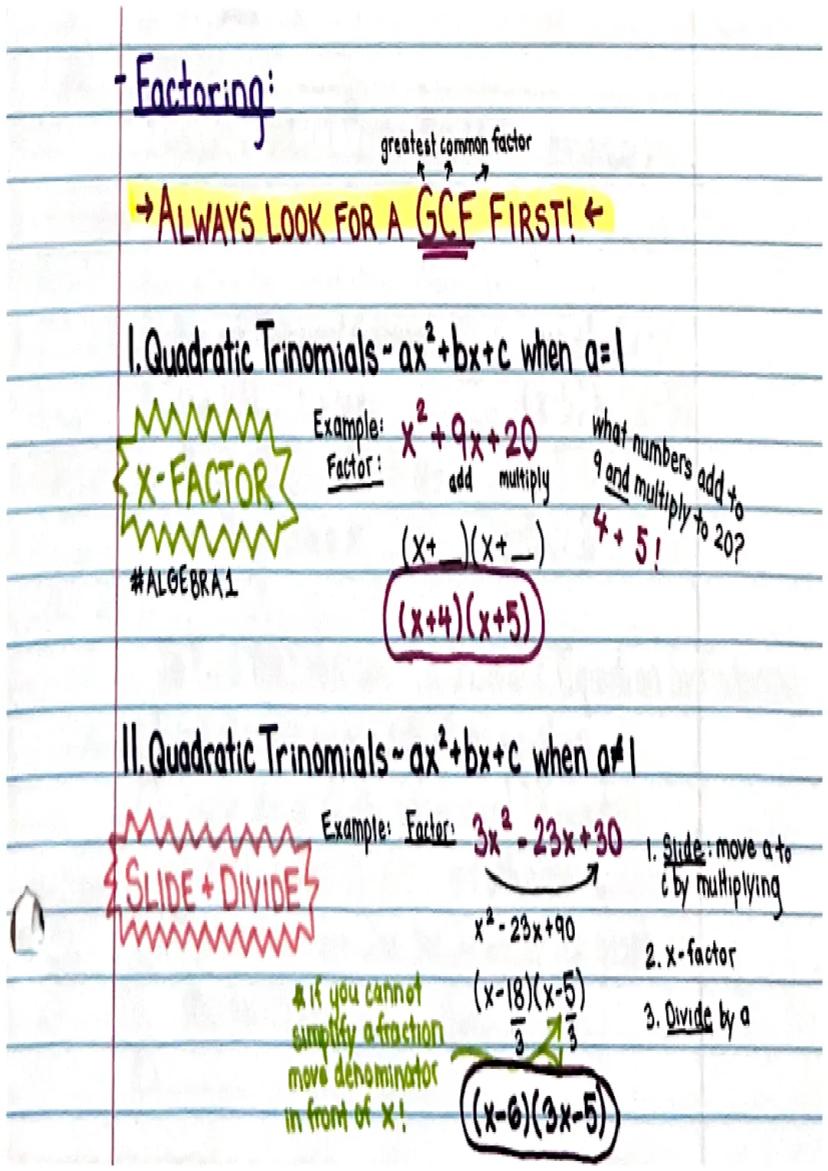 - Factoring:
greatest common factor
→ ALWAYS LOOK FOR A GCF FIRST! ←
I. Quadratic Trinomials ~ ax²+bx+c when a=1
X-FACTOR
#ALGEBRA1
Example:
Factor:
x² + 9x + 20
add multiply
(x+_)(x+_)
(x+4)(x+5)
what numbers add to
9 and multiply to 20?
4 + 5!
II. Quadratic Trinomials ~ ax²+bx+c when a≠1
SLIDE + DIVIDE
Example: Factor: 3x² - 23x + 30
x² - 23x + 90
(x-18)(x-5)
3 3
(x-6)(3x-5)
* if you cannot
simplify a fraction
move denominator
in front of x!
1. Slide: move a to
c by multiplying
2. x-factor
3. Divide by a